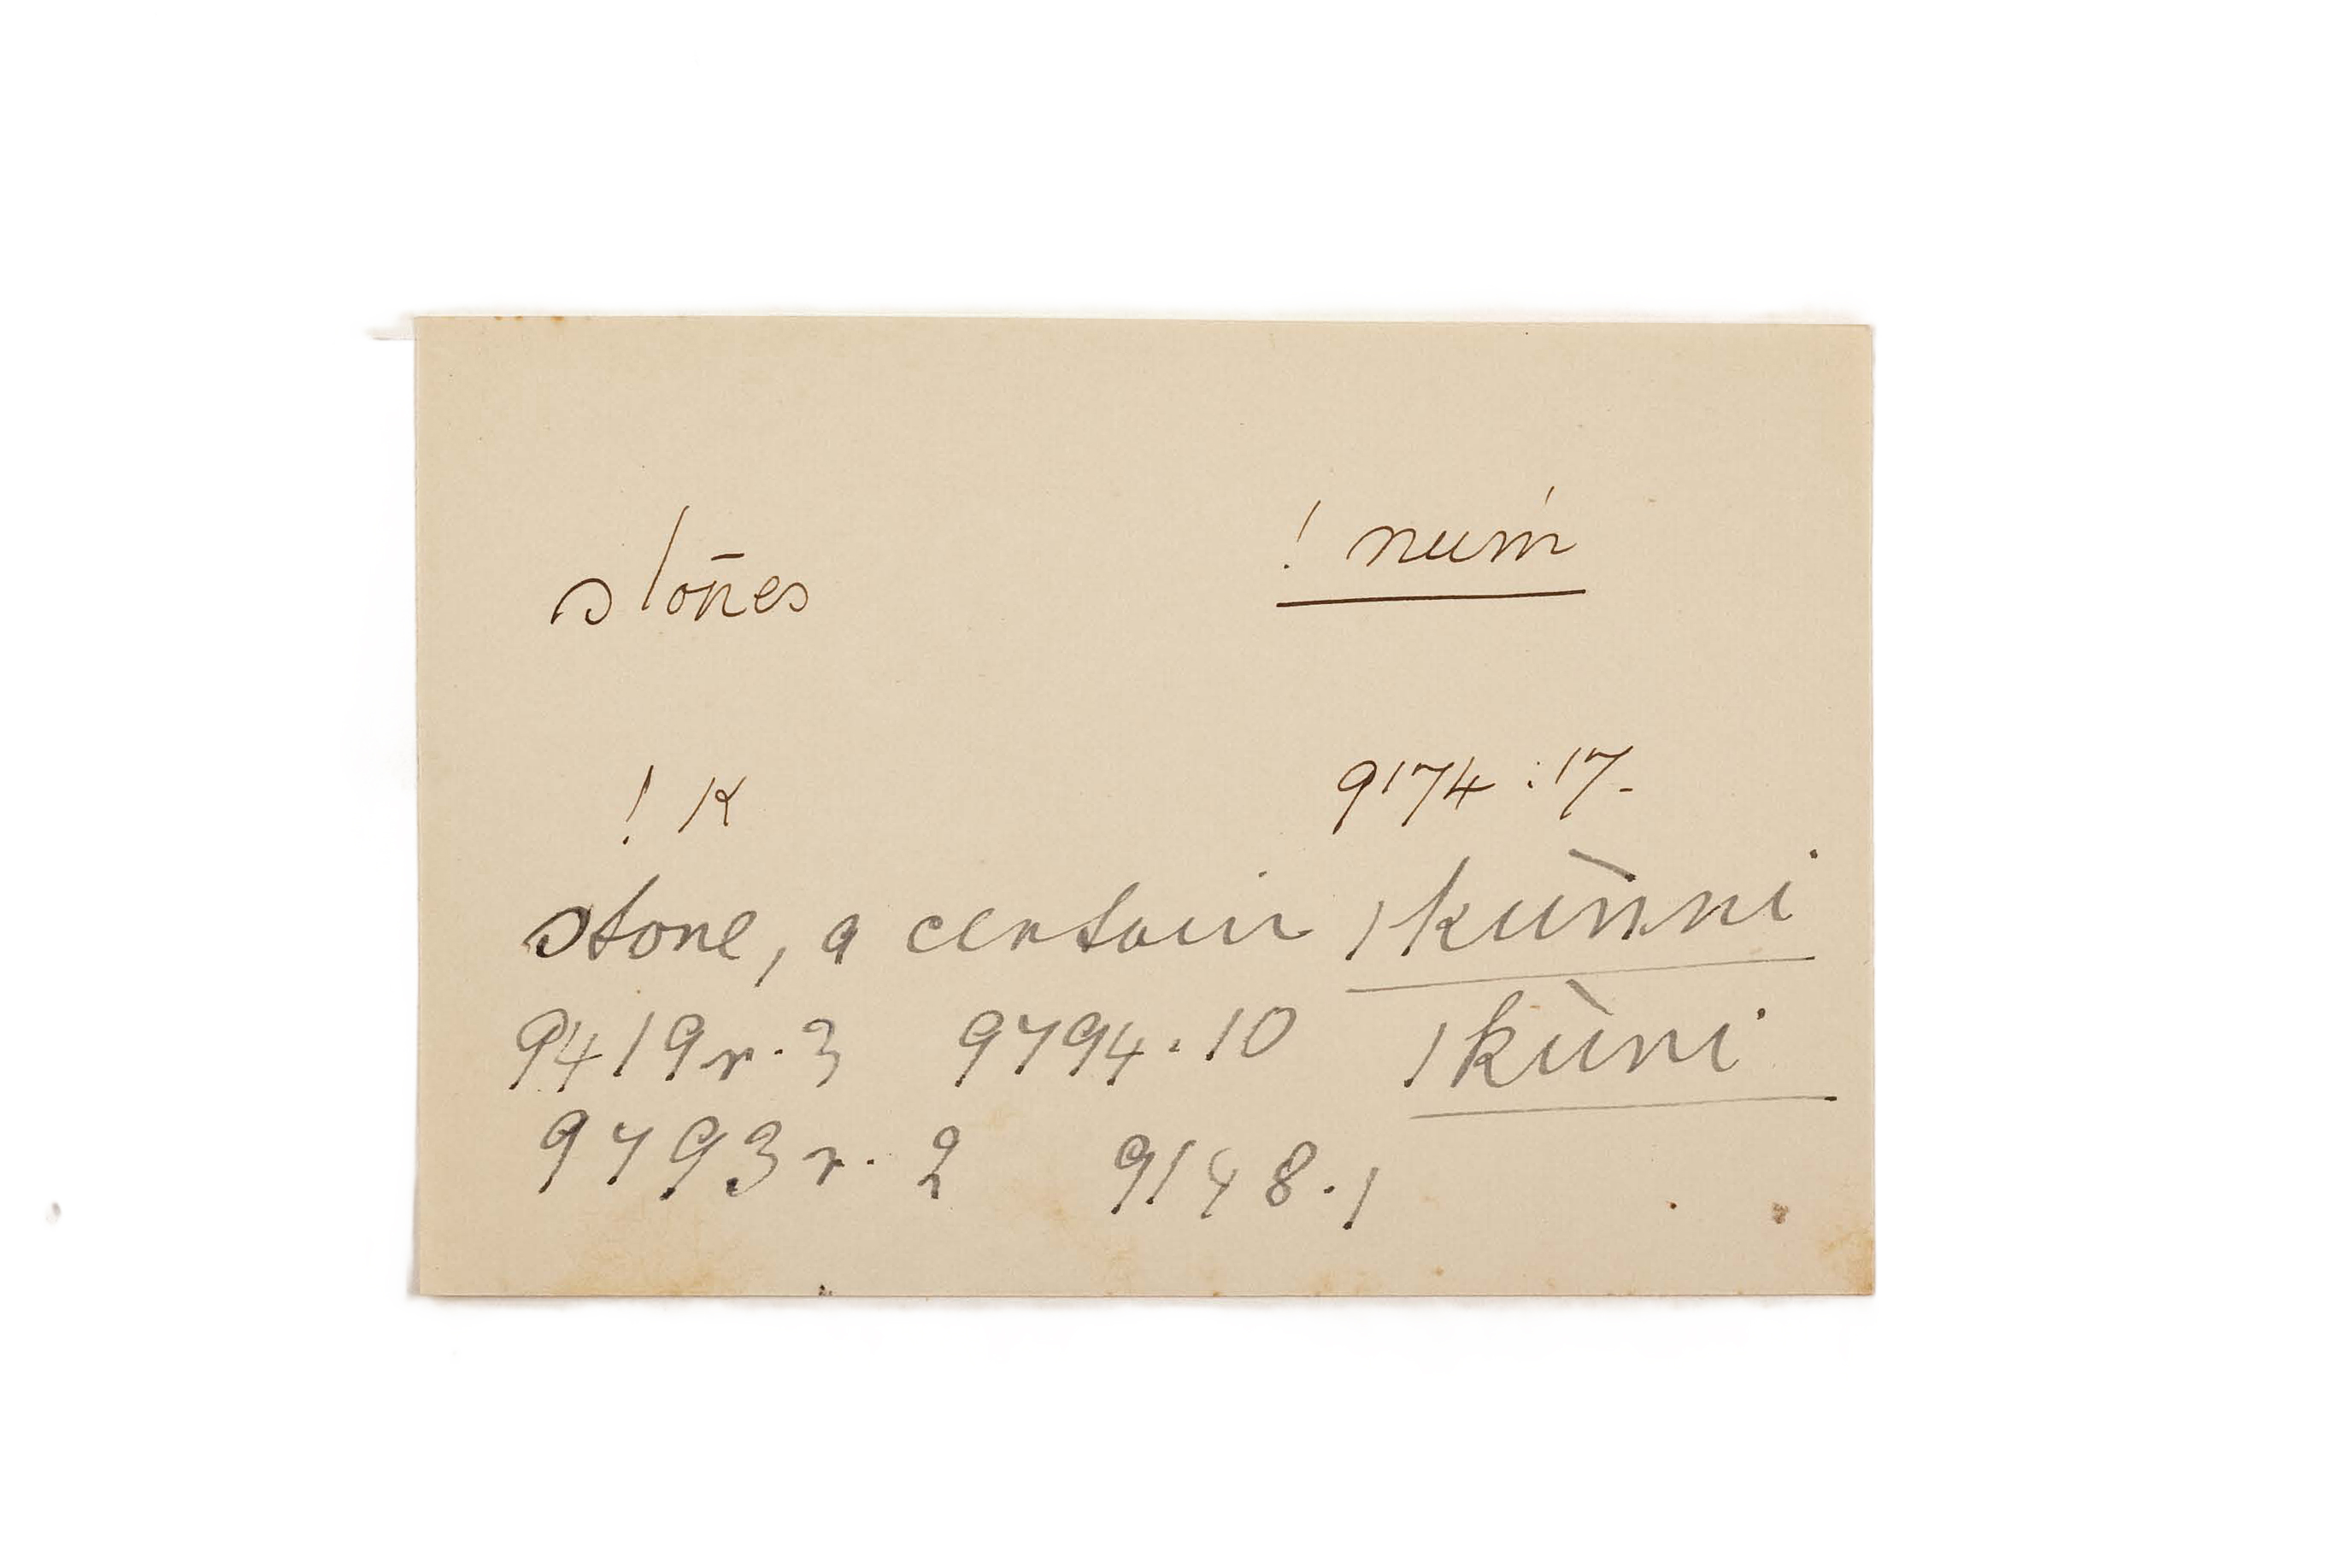 stones ! nuḿ
! K 9174:17.
stone, a certain /kùnni
9419r.3 9794.10 /kùni
9793r.2 9148.1